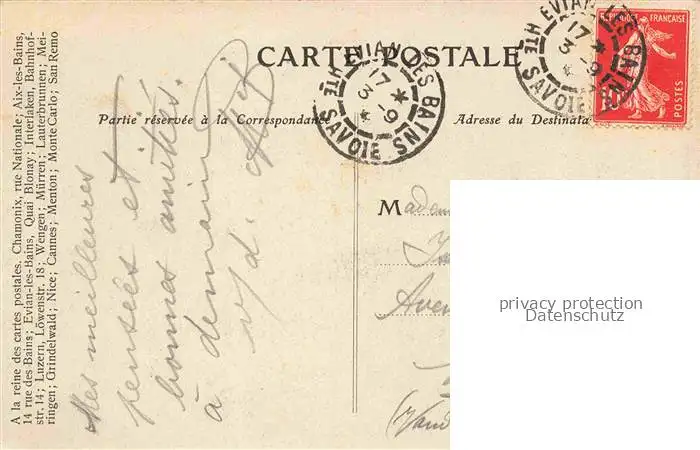 A la reine des cartes postales. Chamonix, rue Nationale; Aix-les-Bains,
14 rue des Bains; Evian-les-Bains, Quai Blonay; Interlaken, Bahnhof-
str. 14; Luzern, Löwenstr. 18; Wengen; Mürren; Lauterbrunnen; Mei-
ringen; Grindelwald; Nice; Cannes; Menton; Monte Carlo; San Remo
CARTE POSTALE
Partie réservée à la Correspondance
Adresse du Destinata
EVIAN LES BAINS
17 *
3 - 9
*
HTE SAVOIE
EVIAN LES BAINS
17 *
3 - 9
*
HTE SAVOIE
REPUBLIQUE FRANÇAISE
10
POSTES
Mes meilleures
pensées et
bonnes amitiés.
à demain
Madam
Aven
(Vaud
privacy protection
Datenschutz